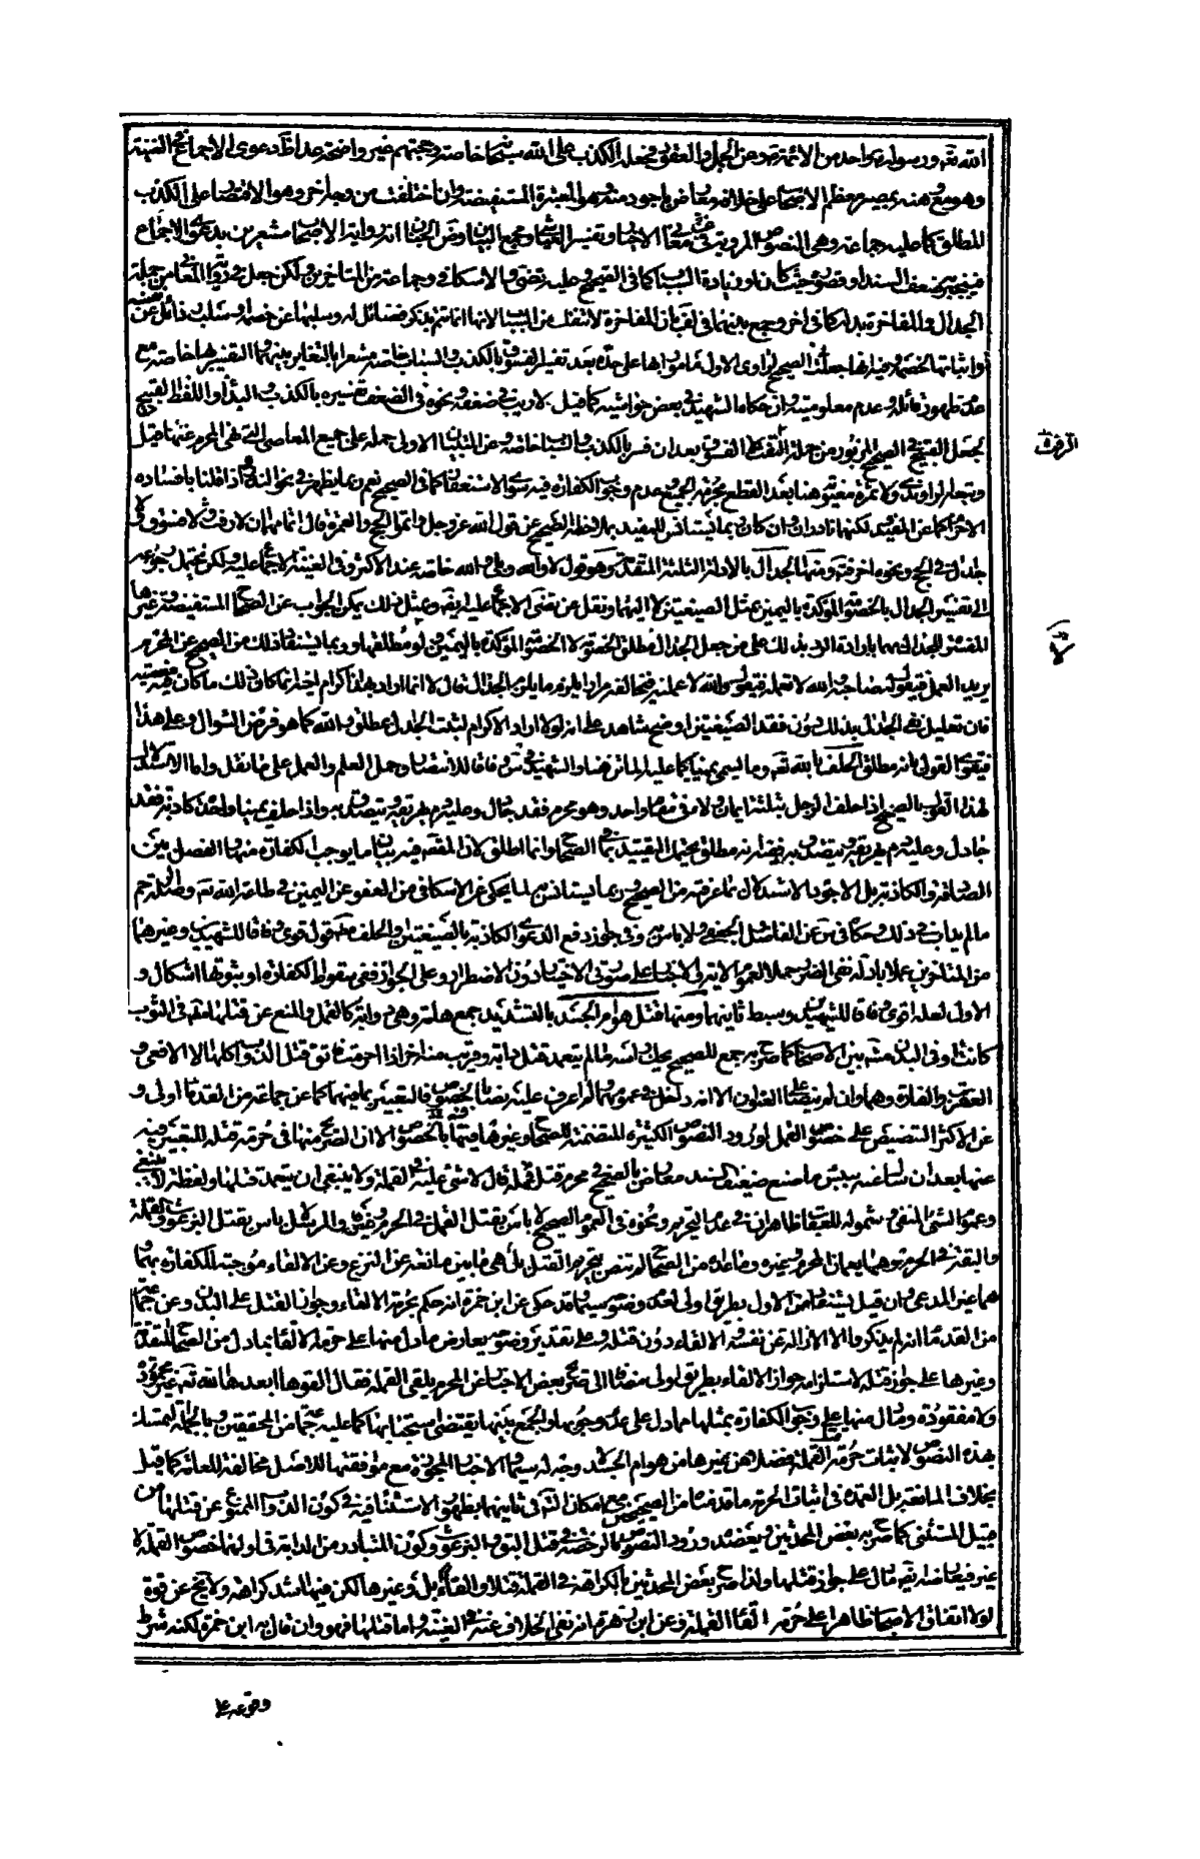 الله تعه ورسوله او واحد من الائمة وعن الجمل والعقود فجعله الكذب على الله سبحانه خاصة وحجتهم غير واضحة عدا ادعاء دعوى الاجماع في الغنية
وهو مع وهنه بمصير معظم الاصحاب على خلافه معارض باجود منه وهو المعتبرة المستفيضة وان اختلفت من وجه اخر وهو الاقتصار على الكذب
المطلق كما عليه جماعة وهي النصوص المروية في معاني الاخبار وتفسير العياشي ومجمع البيان وروض الجنان انه رواية الاصحاب مشعرين بدعوى الاجماع
فينجبر ضعف السند او قصوره حيث كان او زيادة السباب كما في الصحيح وعليه المرتضى والاسكافي وجماعة من المتاخرين ولكن جعل في
الجدال والمفاخرة بدله كما في اخر وجمع بينهما في لف بان المفاخرة لا تنفك عن السباب لانها انما تتم بذكر فضائل له وسلبها عن خصمه او سلب رذائل عن نفسه
واثباتها لخصمه
عدم ظهور قائله وعدم معلوميته وان حكاه الشهيد في بعض حواشيه كما قيل لا ريب في ضعفه ونحوه في الضعف تفسيره بالكذب والبذاء واللفظ القبيح
لجعل القبيح في الصحيح المزبور من جملة التفث لا الفسوق بعد ان فسر بالكذب والسباب خاصة وعن التبيان الاولى حمله على جميع المعاصي التي نهى المحرم عنها قيل
وتبعه الراوندي ولا ثمرة معنوية هنا بعد القطع بحرمة الجميع وعدم وجوب الكفارة فيه سوى الاستغفار كما في الصحيح نعم ربما يظهر في نحو النذر وفيما اذا قلنا بافساده
الاحرام كما عن المفيد لكنهما نادران وان كان ربما يستانس للمفيد بملاحظة الصحيح عن قول الله عز وجل واتموا الحج والعمرة قال اتمامهما ان لا رفث ولا فسوق ولا
جدال في الحج ونحوه اخر فتدبر ومنها الجدال بالادلة الثلثة المتقدمة وهو قول لا والله وبلى والله خاصة عند الاكثر وفي الغنية الاجماع عليه ولكن يحتمل رجوعه
الى تفسير الجدال بالخصومة المؤكدة باليمين بمثل الصيغتين لا اليهما ونقل عن تضى الاجماع عليه ايضه وبمثل ذلك يمكن الجواب عن الصحاح المستفيضة وغيرها
المفسرة للجدال بهما بارادة الرد بذلك على من جعل الجدال مطلق الخصومة لا الخصومة المؤكدة باليمين ولو مطلقها وربما يستفاد ذلك من الصحيح عن المحرم
يريد العمل فيقول له صاحبه والله لا تعمله فيقول والله لاعملنه فيحالفه مرارا يلزمه ما يلزم الجدال قال لا انما اراد بهذا اكرام اخيه انما كان ذلك ما كان فيه معصية
فان تعليل نفي الجدال بذلك دون فقد الصيغتين اوضح شاهد على انه لولا ارادة الاكرام لثبت الجدال بمطلق والله كما هو فرض السؤال وعلى هذا
فيقوى القول بانه مطلق الحلف بالله تعه وما يسمى يمينا كما عليه الماتن هنا والشهيد في س وفاقا للانتصار وجمل العلم والعمل على ما نقل واما الاستدلال
لهذا القول بالصحيح اذا حلف الرجل بثلثة ايمان ولاء في مقام واحد وهو محرم فقد جادل وعليه دم يهريقه ويتصدق به واذا حلف يمينا واحدة كاذبة فقد
جادل وعليه دم يهريقه ويتصدق به فيضعف بانه مطلق يحتمل التقييد بما في الصحاح وانما اطلق لان المقصود فيه بيان ما يوجب الكفارة منها والفصل بين
الصادقة والكاذبة بل الاجود الاستدلال بما عرفته من الصحيح وربما يستانس به لما يحكى عن الاسكافي من العفو عن اليمين في طاعة الله تعه وصلة الرحم
ما لم يداب في ذلك وحكاه في س عن الفاضل والجعفي ولا باس به وفي جواز دفع الدعوى الكاذبة بالصيغتين والحلف بهما قول قوي وفاقا للشهيدين وغيرهما
من المتاخرين عملا بادلة نفي الضرر حملا لعموم الاية والاخبار على صورتي الاختيار دون الاضطرار وعلى الجواز ففي سقوط الكفارة او ثبوتها اشكال و
الاول لعله اقوى وفاقا للشهيدين وبسيط ثانيهما ومنها قتل هوام الجسد بالتشديد جمع هامة وهي دوابه كالقمل والمنع عن قتلها مطلقه في الثوب
كانت او في البدن مشهور بين الاصحاب كما صرح به جمع للصحيح يحك راسه ما لم يتعمد قتل دابة وقريب منه اخر اذا احرمت فاتق قتل الدواب كلها الا الافعى و
العقرب والفارة وهما وان لم ينصا على العنوان الا انه داخل في عمومهما لما عرف عليه نصا بالخصوص فالتعبير بما فيهما كما عن جماعة من القدماء اولى و
عن الاكثر التنصيص على خصوص القمل لورود النصوص الكثيرة المتضمنة للصحاح وغيرها فيه بالخصوص الا ان الصريح منها في حرمة قتله للتعبير فيه
عنها بعد ان سئل عنه ببئس ما صنع ضعيف السند معارض بالصحيح في محرم قتل قملة قال لا شيء عليه في القملة ولا ينبغي ان يتعمد قتلها ولفظة لا ينبغي
وعموم الشيء المنفي وشموله للعقاب ظاهران في عدم التحريم ونحوه في العموم الصحيح لا باس بقتل القمل في الحرم وغيره والمرسل لا باس بقتل البرغوث والقملة
والبقة في الحرم توهما يعمان المحرم وغيره وما عداه من الصحاح لم يتضمن تحريم القتل بل هي ما بين مانعة عن النزع وعن الالقاء وموجبة للكفارة بهما و
هما غير المدعى وان قيل يستفاد من الاول بطريق اولى لعدم وضوحه سيما وقد حكى عن ابن حمزة انه حكم بحرمة الالقاء وجواز القتل على البدن وعن جماعة
من القدماء انهم لم يذكروا الا الازالة عن نفسه والالقاء دون قتله وعلى تقدير وضوحه يعارض ما دل منها على حرمة الالقاء بما دل من الصحاح المتقدمة
وغيرها على جواز قتله لاستلزامه جواز الالقاء بطريق اولى مضافا الى صريح بعض الاخبار عن المحرم يلقى القملة فقال القوها ابعدها الله تعه غير محمودة
ولا مفقودة وما دل منها على وجوب الكفارة بمثلها مما دل على عدم وجوبها والجمع بينها يقتضى استحبابها كما عليه جماعة من المحققين وبالجملة التمسك
بهذه النصوص لاثبات حرمة قتل القملة فضلا عن غيرها من هوام الجسد لا وجه له سيما والاخبار المجوزة مع موافقتها للاصل مخالفة للعامة كما قيل
بخلاف المانعة بل العمدة في اثبات الحرمة ما قدمناه من الصحيحين مع امكان النظر في ثانيهما بظهور الاستثناء فيه في كون الدواب الممنوع عن قتلها من
قبيل المستثنى كما صرح به بعض المحدثين ويعضده ورود النصوص بالرخصة في قتل البق والبرغوث وكون المتبادر من الدابة في اولهما خصوص القملة
غير فيعارضه ما دل على جواز قتلها ولذا صرح بعض المحدثين بالكراهة في القملة قتلا والقاء بل وغيرها لكن فيهما اشد كراهة ولا يخ عن قوة
لولا اتفاق الاصحاب ظاهرا على حرمة القاء القملة وعن ابن زهرة انه نفى الخلاف عنه في الغنية واما قتلها فهو وان قال به ابن حمزة لكنه شرط
الرفث
لا
وقوعه على